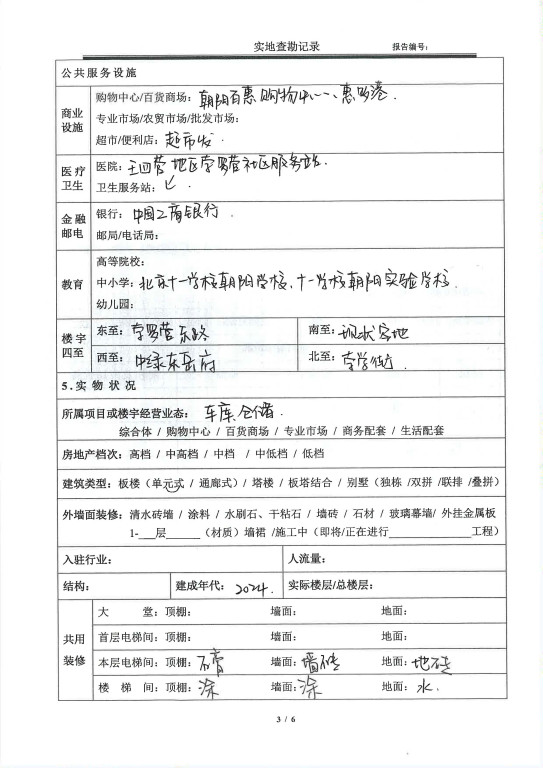 实地查勘记录 报告编号:
公共服务设施
商业设施 购物中心/百货商场: 朝阳百惠购物中心、惠多港.
专业市场/农贸市场/批发市场:
超市/便利店: 超市发
医疗卫生 医院: 王四营地区孛罗营社区服务站.
卫生服务站: ✓.
金融邮电 银行: 中国工商银行.
邮局/电话局:
教育 高等院校:
中小学: 北京十一学校朝阳学校、十一学校朝阳实验学校.
幼儿园:
楼宇四至 东至: 孛罗营东路 南至: 现状空地
西至: 中绿东岳府 北至: 李学街
5.实物状况
所属项目或楼宇经营业态: 车库、仓储.
综合体 / 购物中心 / 百货商场 / 专业市场 / 商务配套 / 生活配套
房地产档次: 高档 / 中高档 / 中档 / 中低档 / 低档
建筑类型: 板楼（单元式 / 通廊式）/ 塔楼 / 板塔结合 / 别墅（独栋 /双拼 /联排 /叠拼）
外墙面装修: 清水砖墙 / 涂料 / 水刷石、干粘石 / 墙砖 / 石材 / 玻璃幕墙/ 外挂金属板
1-___层______（材质）墙裙 /施工中（即将/正在进行____________工程）
入驻行业: 人流量:
结构: 建成年代: 2024. 实际楼层/总楼层:
共用装修 大堂: 顶棚: 墙面: 地面:
首层电梯间: 顶棚: 墙面: 地面:
本层电梯间: 顶棚: 石膏 墙面: 墙砖 地面: 地砖
楼梯间: 顶棚: 涂 墙面: 涂 地面: 水.
3 / 6